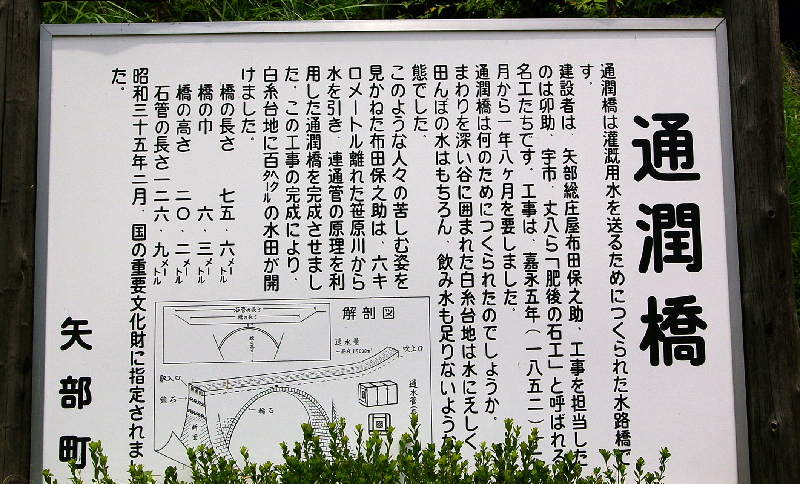 通潤橋
通潤橋は灌漑用水を送るためにつくられた水路橋で
す。
建設者は、矢部総庄屋布田保之助、工事を担当した
のは卯助、宇市、丈八ら「肥後の石工」と呼ばれる
名工たちです。工事は、嘉永五年(一八五二)十二
月から一年八ヶ月を要しました。
通潤橋は何のためにつくられたのでしょうか。
まわりを深い谷に囲まれた白糸台地は水にえしく
田んぼの水はもちろん、飲み水も足りないような
態でした。
このような人々の苦しむ姿を
見かねた布田保之助は、六キ
ロメートル離れた笹原川から
水を引き、連通管の原理を利
用した通潤橋を完成させまし
た。この工事の完成により、
白糸台地に百ヘクタールの水田が開
けました。
橋の長さ 七五・六メートル
橋の巾 六・三メートル
橋の高さ 二〇・二メートル
石管の長さ一二六・九メートル
昭和三十五年二月、国の重要文化財に指定されまし
た。
矢部町
解剖図
吹上口
通水管
取入口
輪石